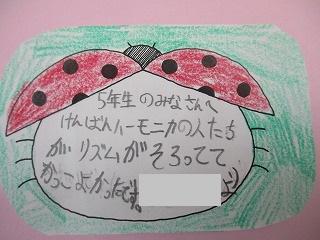 5年生のみなさんへ
けんばんハーモニカの人たち
がリズムがそろってて
かっこよかったです。
より